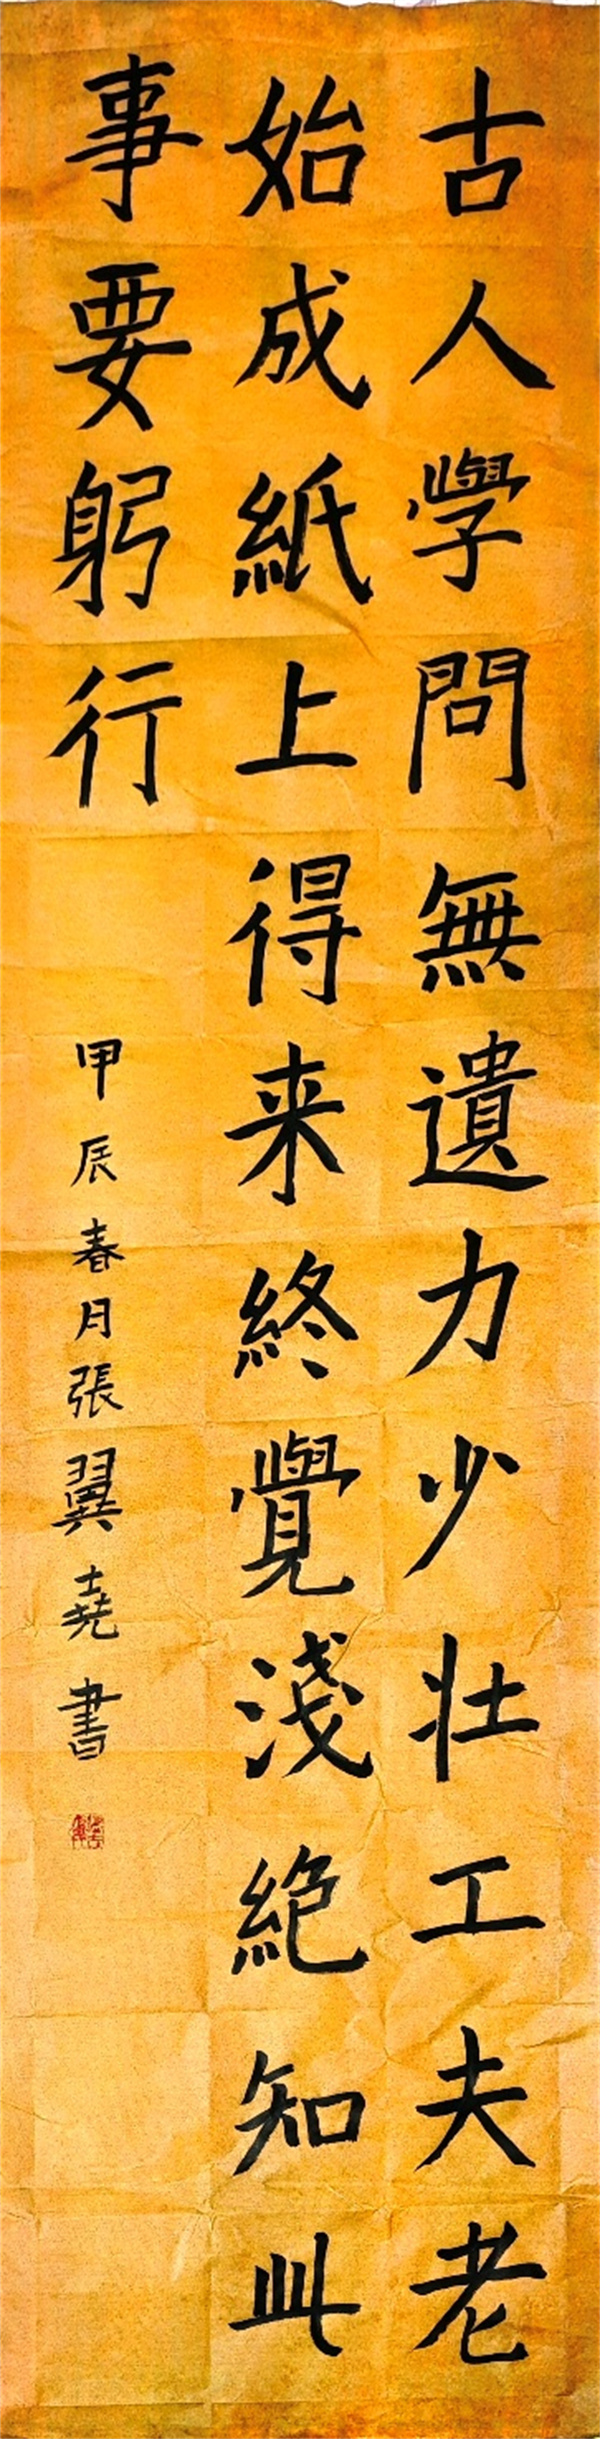 古人學問無遺力少壯工夫老
始成紙上得来終覺淺絕知此
事要躬行
甲辰春月張翼堯書